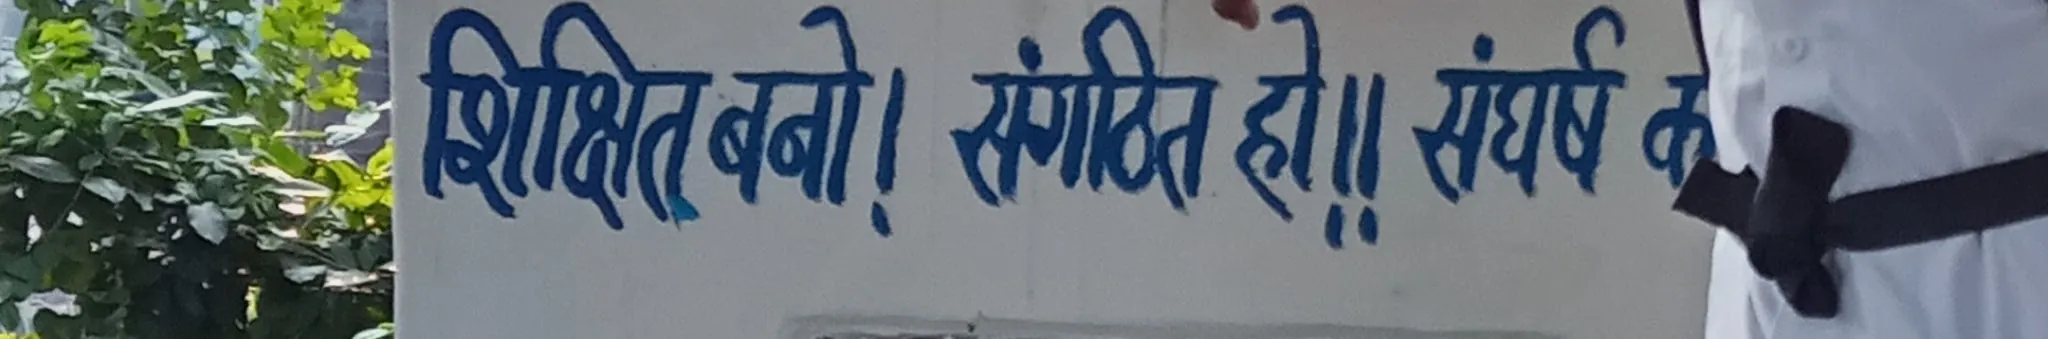 शिक्षित बनो! संगठित हो!! संघर्ष